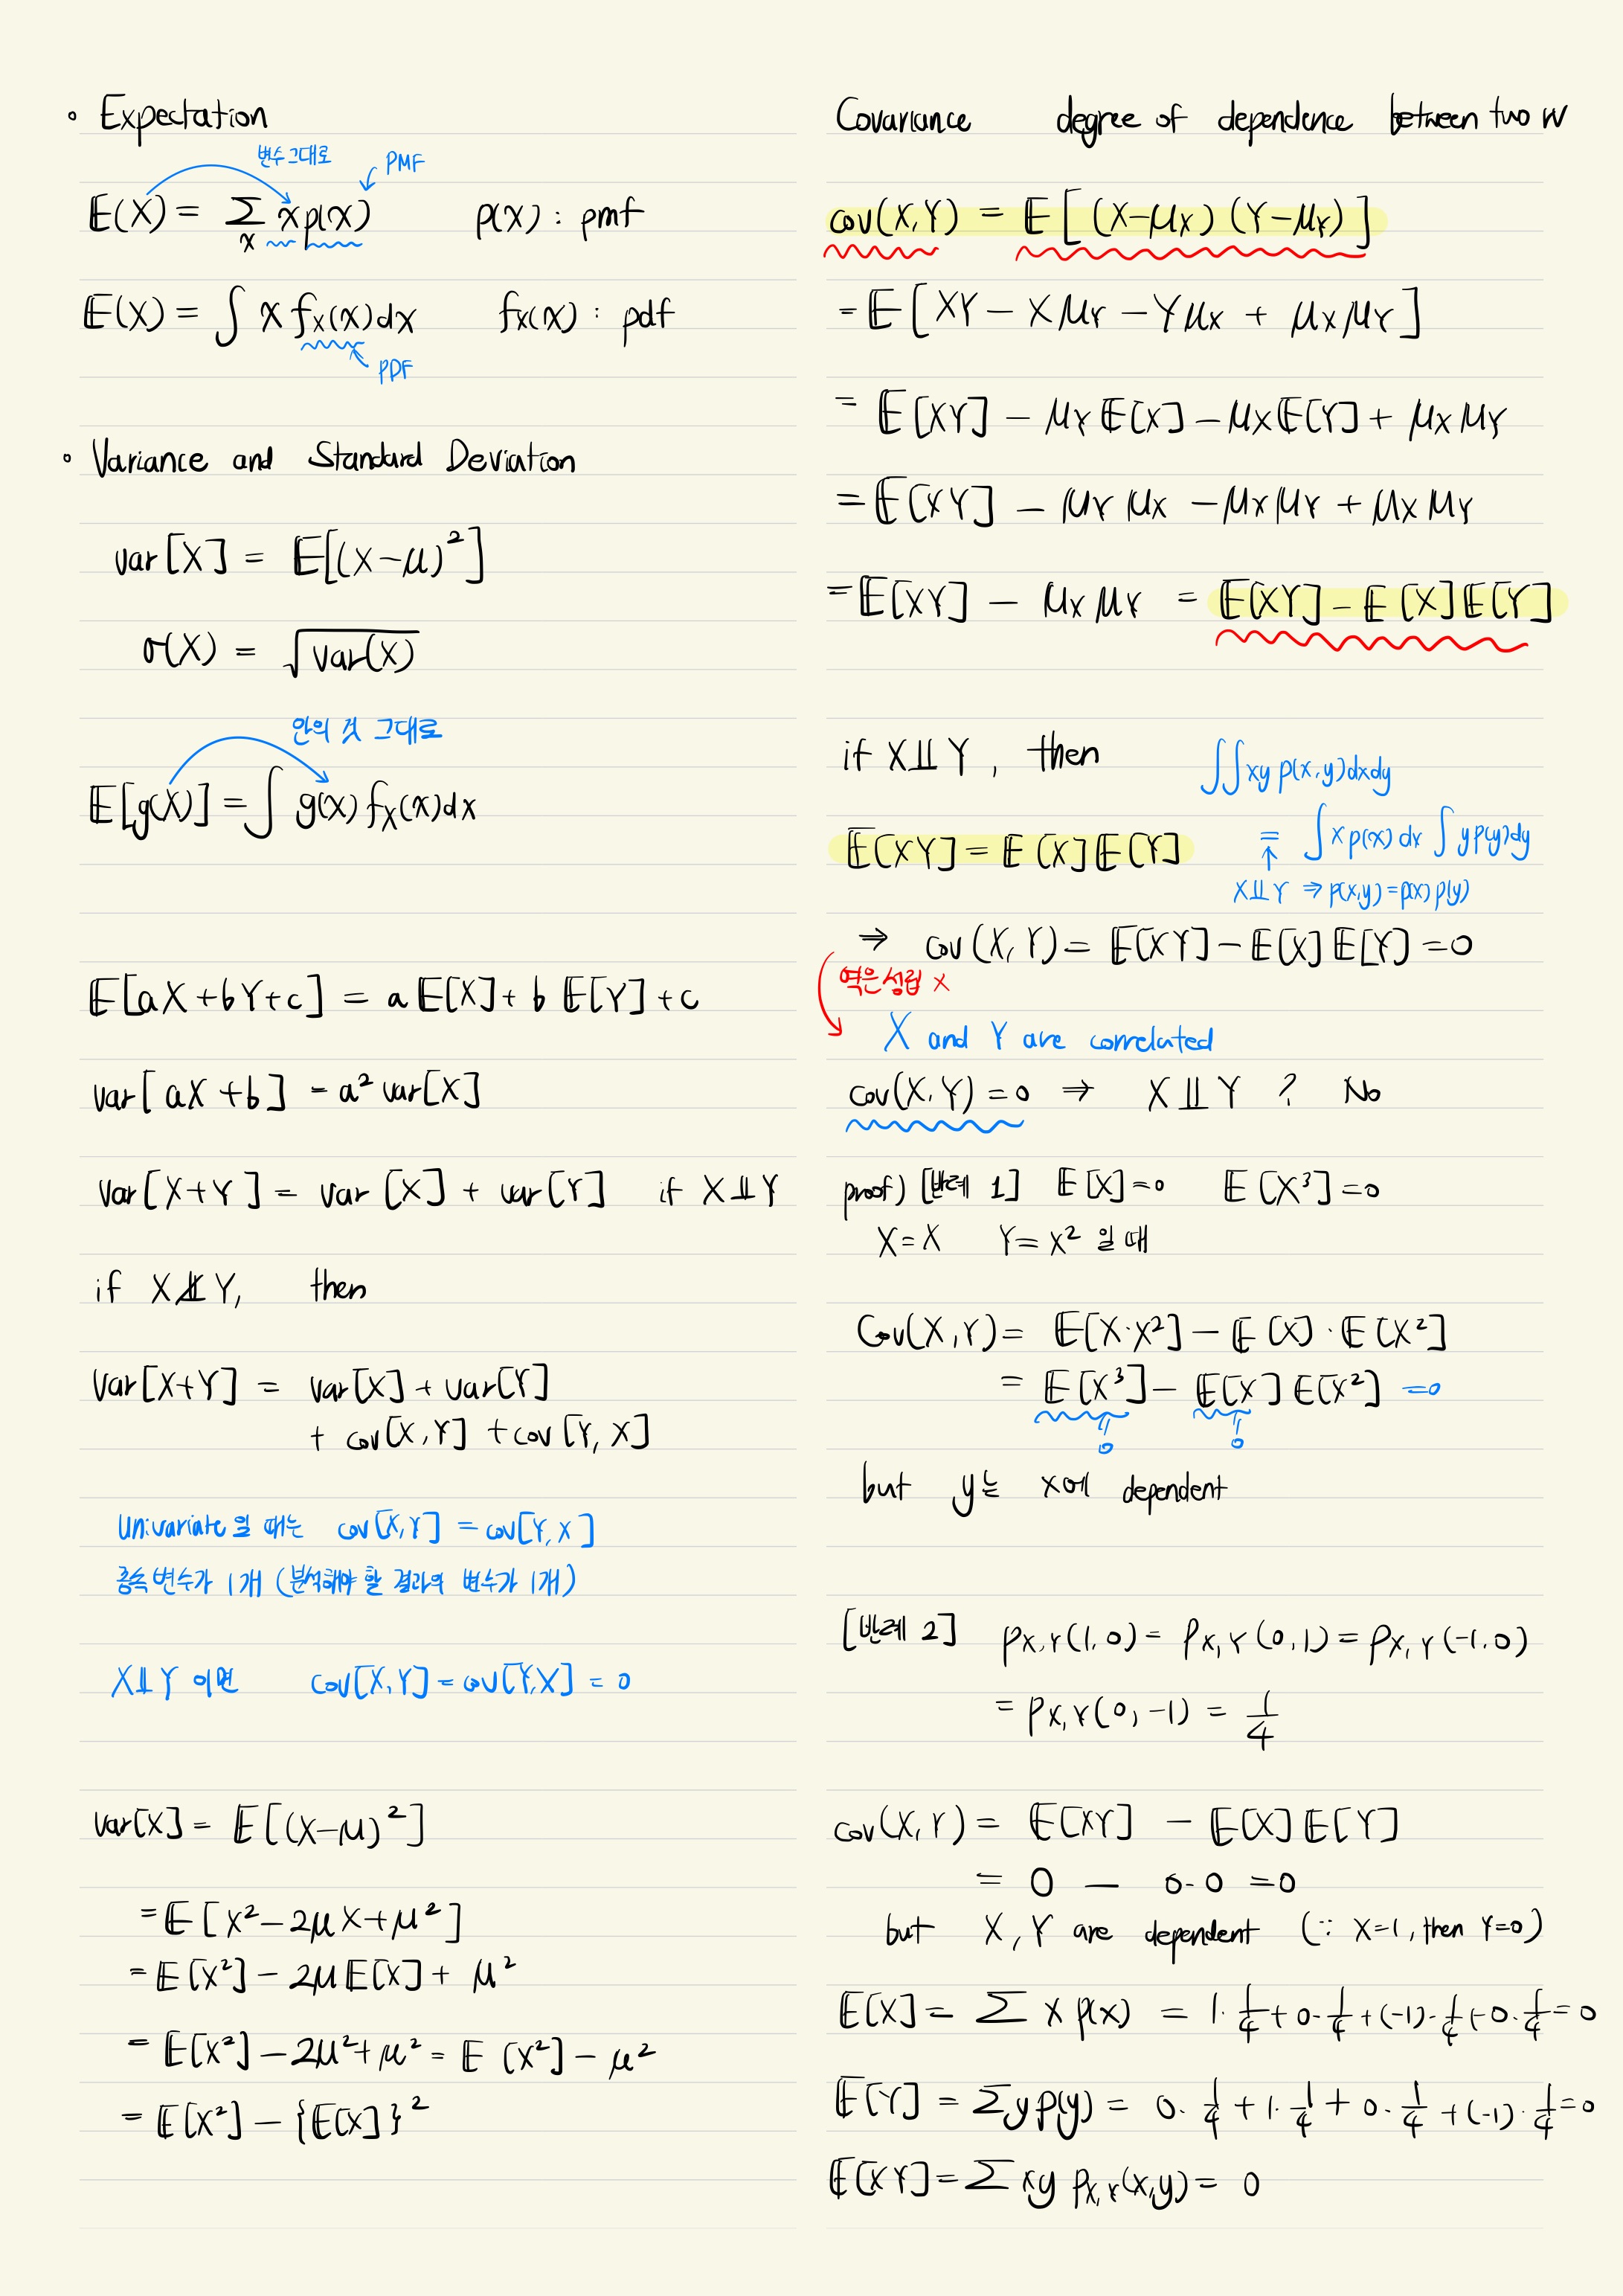 ◦ Expectation
변수 그대로
PMF
E(X) = ∑ₓ x p(x)    p(x) : pmf
E(X) = ∫ x fₓ(x)dx    fₓ(x) : pdf
PDF
◦ Variance and Standard Deviation
var[X] = E[(X-μ)²]
σ(X) = √var(X)
안의 것 그대로
E[g(X)] = ∫ g(x) fₓ(x)dx
E[aX+bY+c] = a E[X] + b E[Y] + c
var[aX+b] = a² var[X]
var[X+Y] = var[X] + var[Y]    if X⫫Y
if X⫫̸Y, then
var[X+Y] = var[X] + var[Y]
+ cov[X,Y] + cov[Y,X]
Univariate 일 때는 cov[X,Y] = cov[Y,X]
종속변수가 1개 (분석해야 할 결과의 변수가 1개)
X⫫Y 이면    cov[X,Y] = cov[Y,X] = 0
var[X] = E[(X-μ)²]
= E[X²-2μX+μ²]
= E[X²] - 2μE[X] + μ²
= E[X²] - 2μ²+μ² = E[X²] - μ²
= E[X²] - {E[X]}²
Covariance    degree of dependence between two rv
cov(X,Y) = E[(X-μX)(Y-μY)]
= E[XY - XμY - YμX + μXμY]
= E[XY] - μYE[X] - μXE[Y] + μXμY
= E[XY] - μYμX - μXμY + μXμY
= E[XY] - μXμY = E[XY] - E[X]E[Y]
if X⫫Y, then
∫∫xy p(x,y)dxdy
E[XY] = E[X]E[Y]
= ∫x p(x)dx ∫y p(y)dy
↑
X⫫Y ⇒ p(x,y)=p(x)p(y)
⇒ cov(X,Y) = E[XY] - E[X]E[Y] = 0
역은 성립 ×
X and Y are correlated
cov(X,Y)=0 ⇒ X⫫Y ? No
proof) [반례 1] E[X]=0    E[X³]=0
X=X    Y=X² 일 때
Cov(X,Y) = E[X·X²] - E[X]·E[X²]
= E[X³] - E[X]E[X²] =0
0    0
but y는 x에 dependent
[반례 2] pX,Y(1,0) = pX,Y(0,1) = pX,Y(-1,0)
= pX,Y(0,-1) = 1/4
cov(X,Y) = E[XY] - E[X]E[Y]
= 0 - 0·0 = 0
but X,Y are dependent (∵ X=1, then Y=0)
E[X] = ∑ x p(x) = 1·1/4 + 0·1/4 + (-1)·1/4 + 0·1/4 = 0
E[Y] = ∑y p(y) = 0·1/4 + 1·1/4 + 0·1/4 + (-1)·1/4 = 0
E[XY] = ∑ xy pX,Y(x,y) = 0